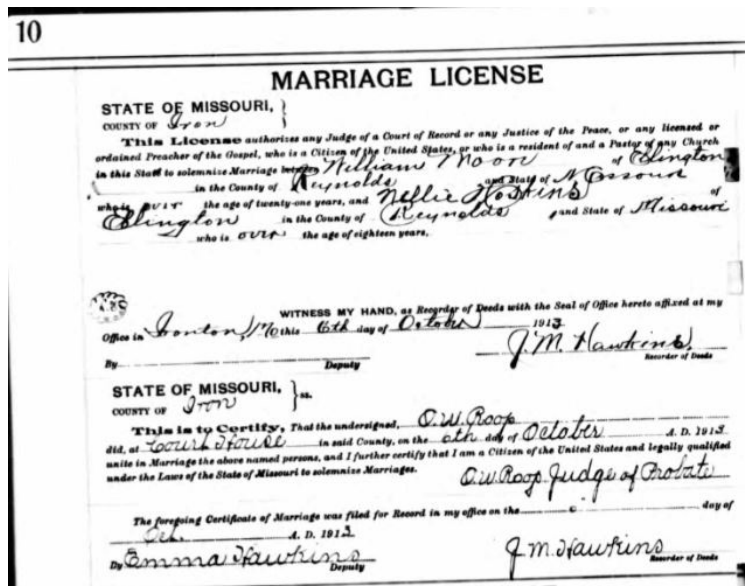 10
MARRIAGE LICENSE
STATE OF MISSOURI, }
COUNTY OF Iron
This License authorizes any Judge of a Court of Record or any Justice of the Peace, or any licensed or
ordained Preacher of the Gospel, who is a Citizen of the United States, or who is a resident of and a Pastor of any Church
in this State to solemnize Marriage between William Moon of Ellington
in the County of Reynolds and State of Missouri
who is over the age of twenty-one years, and Nellie of
Ellington in the County of Reynolds and State of Missouri
who is over the age of eighteen years,
WITNESS MY HAND, as Recorder of Deeds with the Seal of Office hereto affixed at my
Office in Ironton, Mo this 6th day of October 1913
J.M. Hawkins
By Deputy Recorder of Deeds
STATE OF MISSOURI, } ss.
COUNTY OF Iron
This is to Certify, That the undersigned, O.W. Roop
did, at Court House in said County, on the 6th day of October A. D. 1913
unite in Marriage the above named persons, and I further certify that I am a Citizen of the United States and legally qualified
under the Laws of the State of Missouri to solemnize Marriages.
O.W. Roop Judge of Probate
The foregoing Certificate of Marriage was filed for Record in my office on the day of
Oct. A. D. 1913
By Emma Hawkins Deputy J.M. Hawkins Recorder of Deeds